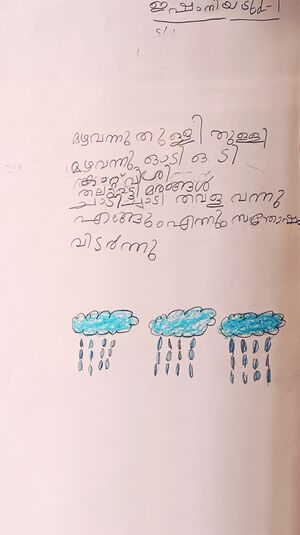 ഇഷാനിയ Std-1
മഴവന്നു തുള്ളി തുള്ളി
മഴവന്നു ഓടി ഒ ടി
കാറ്റ് വീശി
തലയാട്ടി മരങ്ങൾ
ചാടിച്ചാടി തവള വന്നു
എങ്ങും എന്നും സന്തോഷം
വിടർന്നു